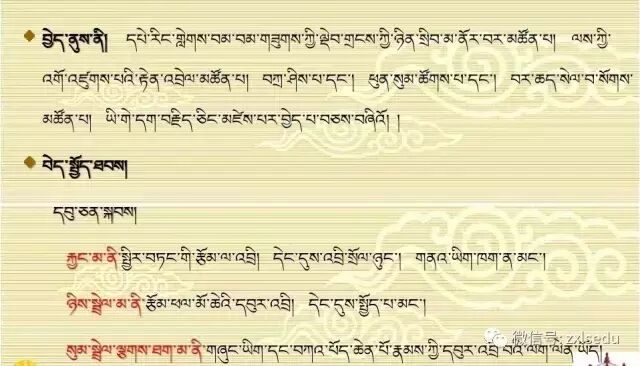 བྱེད་ནུས་ནི། དཔེ་རིང་གླེགས་བམ་བམ་གཟུགས་ཀྱི་ལྡེབ་གྲངས་ཀྱི་ཉིན་སྲིབ་མ་ནོར་བར་མཚོན་པ། ལས་ཀྱི་
འགོ་འཛུགས་པའི་རྟེན་འབྲེལ་མཚོན་པ། བཀྲ་ཤིས་པ་དང་། ཕུན་སུམ་ཚོགས་པ་དང་། བར་ཆད་སེལ་བ་སོགས་
མཚོན་པ། ཡི་གེ་དག་བརྗིད་ཅིང་མཛེས་པར་བྱེད་པ་བཅས་བཞིའོ། །
བེད་སྤྱོད་ཐབས།
དབུ་ཅན་སྐབས།
རྐྱང་མ་ནི་སྤྱིར་བཏང་གི་རྩོམ་ལ་འབྲི། དེང་དུས་འབྲི་སྲོལ་ཉུང་། གནའ་ཡིག་ཁག་ན་མང་།
ཉིས་སྦྲེལ་མ་ནི་རྩོམ་ཕལ་མོ་ཆེའི་དབུར་འབྲི། དེང་དུས་སྤྱོད་པ་མང་།
སུམ་སྦྲེལ་ལྕགས་ཐག་མ་ནི་གཞུང་ཡིག་དང་བཀའ་པོད་ཆེན་པོ་རྣམས་ཀྱི་དབུར་འབྲི་བའི་ལག་ལེན་ཡོད།
微信号: zxlsedu